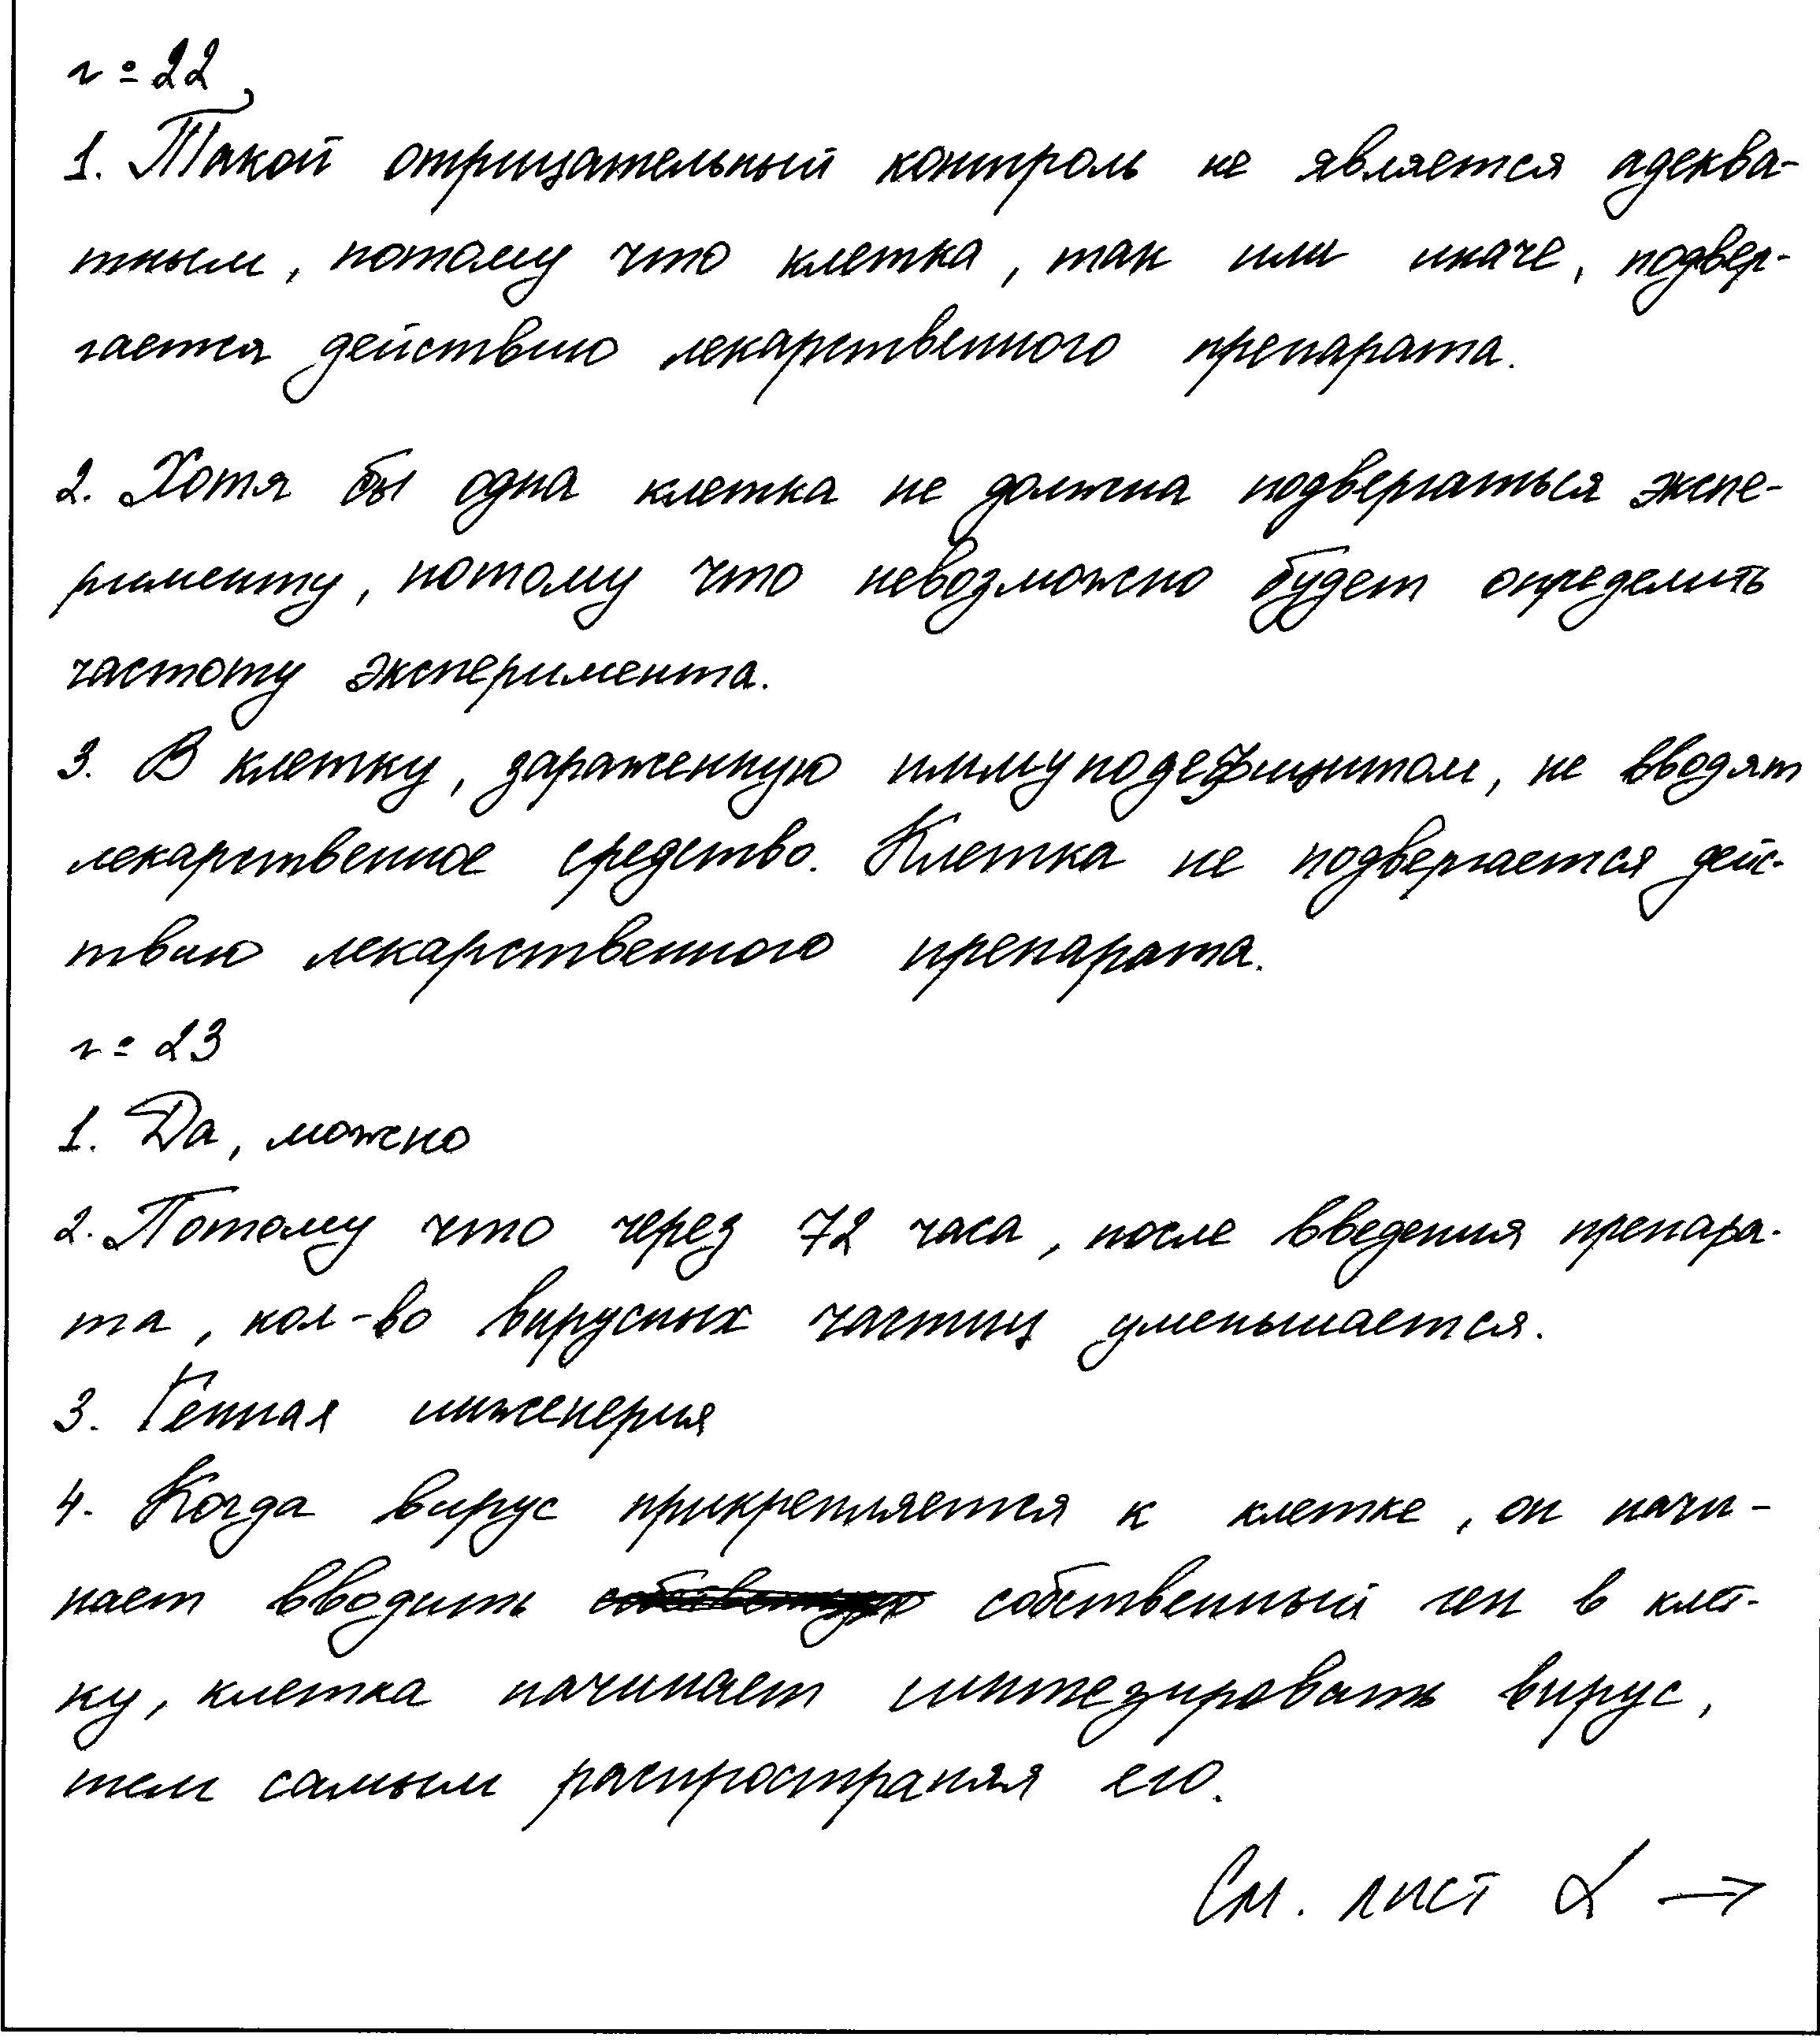 № 22
1. Такой отрицательный контроль не является адеква-
тным, потому что клетка, так или иначе, подвер-
гается действию лекарственного препарата.
2. Хотя бы одна клетка не должна подвергаться экспе-
рименту, потому что невозможно будет определить
частоту эксперимента.
3. В клетку, зараженную иммунодефицитом, не вводят
лекарственное средство. Клетка не подвергается дейс-
твию лекарственного препарата.
№ 23
1. Да, можно
2. Потому что через 72 часа, после введения препара-
та, кол-во вирусных частиц уменьшается.
3. Генная инженерия
4. Когда вирус прикрепляется к клетке, он начи-
нает вводить собственный ген в клет-
ку, клетка начинает синтезировать вирус,
тем самым распространяя его.
См. лист 2 →